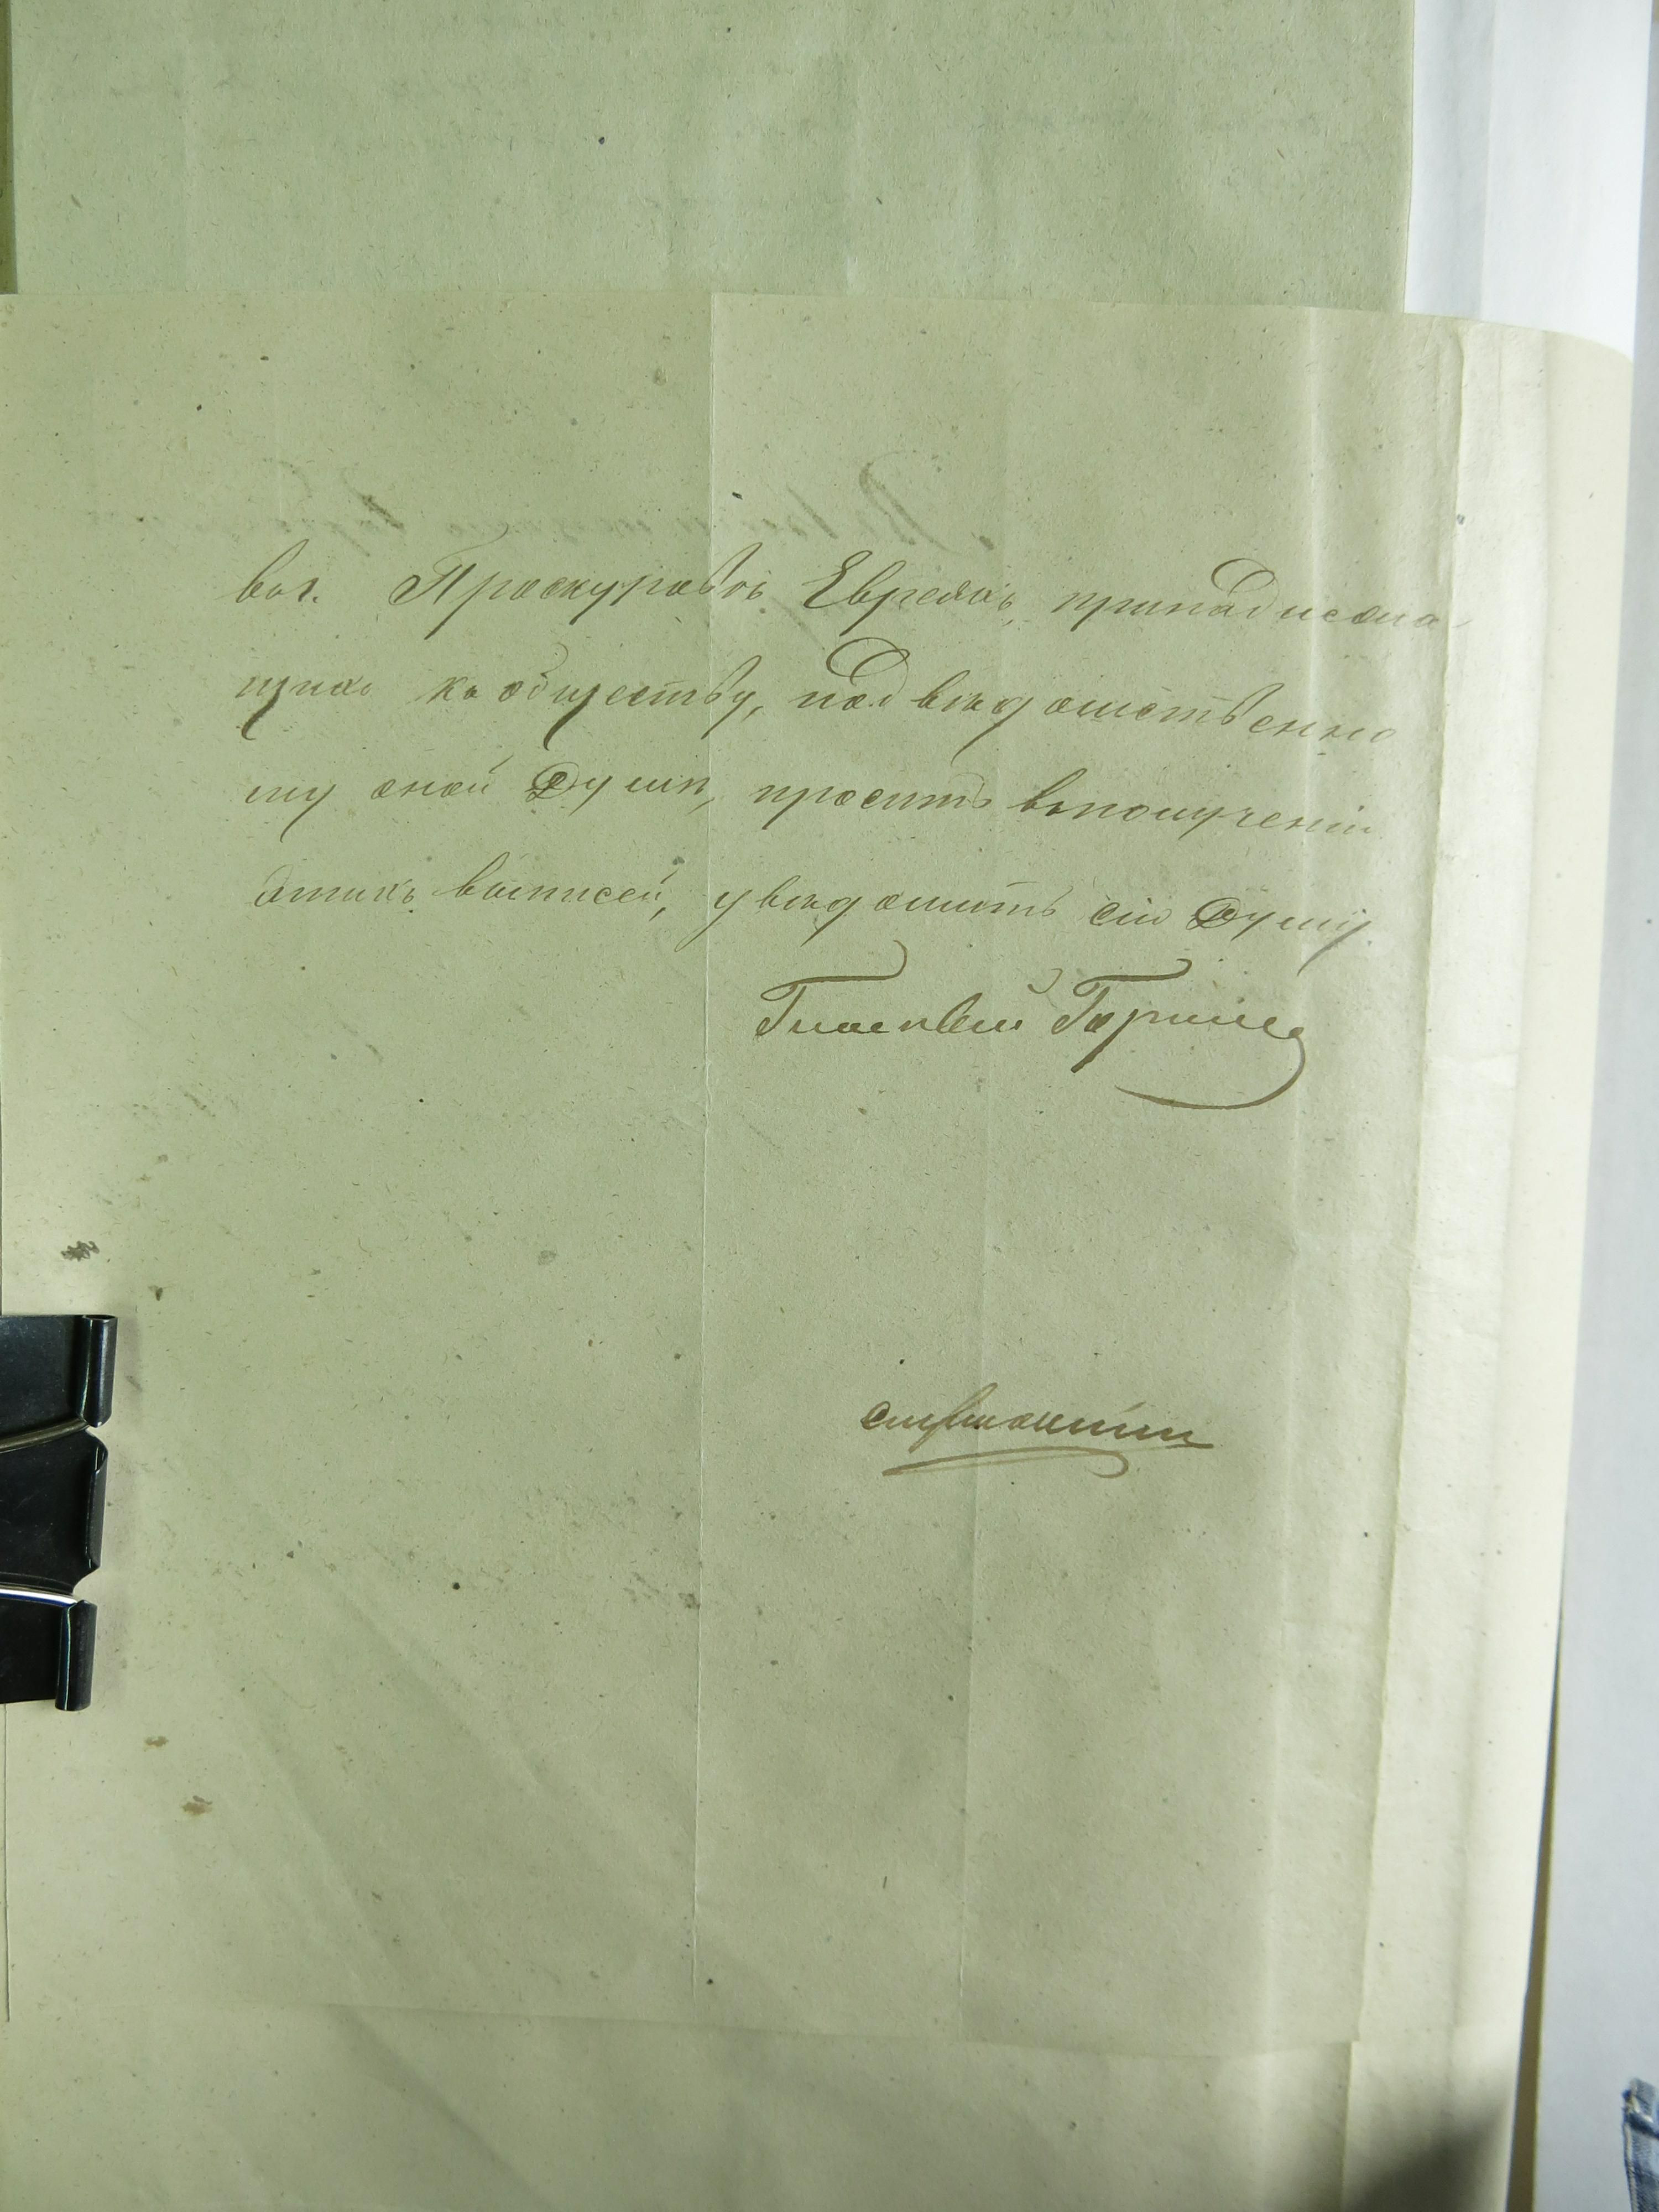 въ г. Проскуровъ Евреяхъ, принадлежа-
щихъ къ обществу, подвѣдомственно
му оной Думѣ, проситъ въ полученіи
этихъ выписей, увѣдомить сію Думу.
Гласный